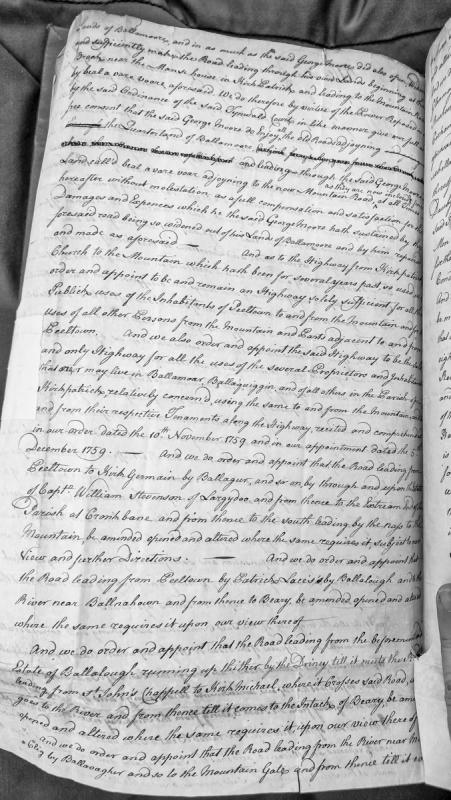 Lands of Ballamoore, and in as much as the said George Moore did also open
and sufficiently make the Road leading through his own Lands beginning at the
Brook near the Mans house in Kirk Patrick and leading to the Mountain
by beal a vare voare aforesaid. We do therefore by virtue of the Power
by the said Ordinance of the said Tynwald Court in like manner give our full
free consent that the said George Moore do Enjoy the old Road adjoyning
the Quarterland of Ballamoore and leading through the said George Moore's
Land call'd beal a vare voar adjoyning to the now Mountain Road, as they are now inclosed at all times
hereafter without molestation as a full compensation and satisfaction for all
Damages and Expences which he the said George Moore hath sustained by the
foresaid road being so widened out of his Lands of Ballamoore and by him
and made as aforesaid — And as to the Highway from Kirkpatrick
Church to the Mountain which hath been for several years past so used
order and appoint to be and remain an Highway solely sufficient for all the
Publick uses of the Inhabitants of Peeltown to and from the Mountain and for
uses of all other Persons from the Mountain and Parts adjacent to and from
Peeltown. And we also order and appoint the said Highway to be the
and only Highway for all the uses of the several Proprietors and Inhabitants
that do, or may live in Ballamoar Ballaquiggin, and of all others in the Parish of
Kirkpatrick relatively concern'd, using the same to and from the Mountain and
and from their respective Tinaments along the Highway, recited and comprehended
in our order dated the 10th November 1759 and in our appointment dated the 5th
December 1759. — And we do order and appoint that the Road leading from
Peeltown to Kirk Germain by Ballagur, and so on by through and upon the
of Capt. William Stevenson of Largydoo, and from thence to the Extream
Parish at Cronkbane, and from thence to the South leading by the naps to the
Mountain be amended opened and altered where the same requires it, subject to our
View and further Directions. — And we do order and appoint that
the Road leading from Peeltown by Patrick Lace's by Ballalough and the
River near Ballnahown and from thence to Beary, be amended opened and altered
where the same requires it upon our view thereof
And we do order and appoint that the Road leading from the
Estate of Ballalough running up thither by the Driny till it meets the
leading from St. John's Chappell to Kirk Michael, where it Crosses said Road,
goes to the River and from thence till it comes to the Intack of Beary be
opened and altered where the same requires it, upon our view thereof
And we do order and appoint that the Road leading from the River near
by Ballavagher and so to the Mountain Gate and from thence till it